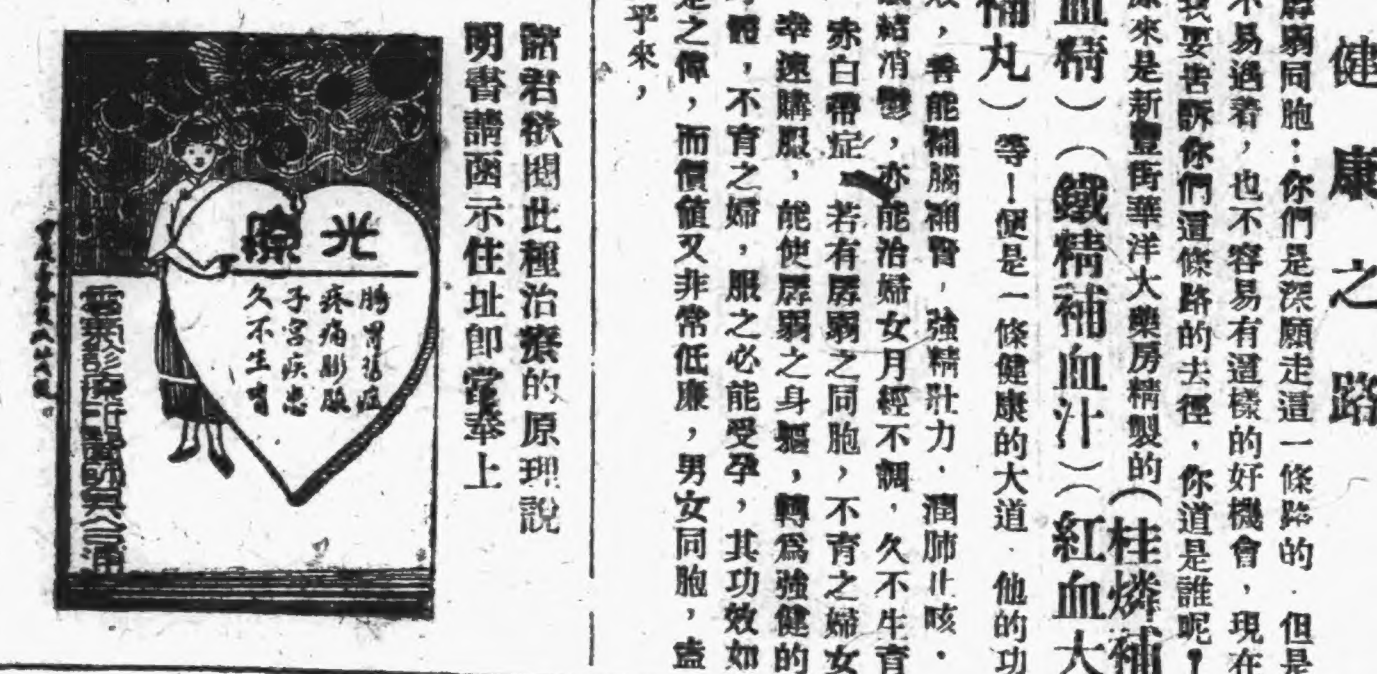 健康之路
孱弱同胞：你們是深願走這一條路的．但是
不易遇着，也不容易有這樣的好機會，現在
我要告訴你們這條路的去徑，你道是誰呢！
原來是新豐街華洋大藥房精製的（桂燐補
血精）（鐵精補血汁）（紅血大
補丸）等！便是一條健康的大道．他的功
效，善能補腦補腎，強精壯力．潤肺止咳．
結消鬱，亦能治婦女月經不調，久不生育
赤白帶症．若有孱弱之同胞，不育之婦女
幸速購服，能使孱弱之身軀，轉爲強健的
體，不育之婦，服之必能受孕，其功效如
是之偉，而價值又非常低廉，男女同胞，盍
乎來，
諸君欲閱此種治療的原理說
明書請函示住址卽當奉上
光療
腸胃
疼痛膨脹
子宮疾患
久不生育